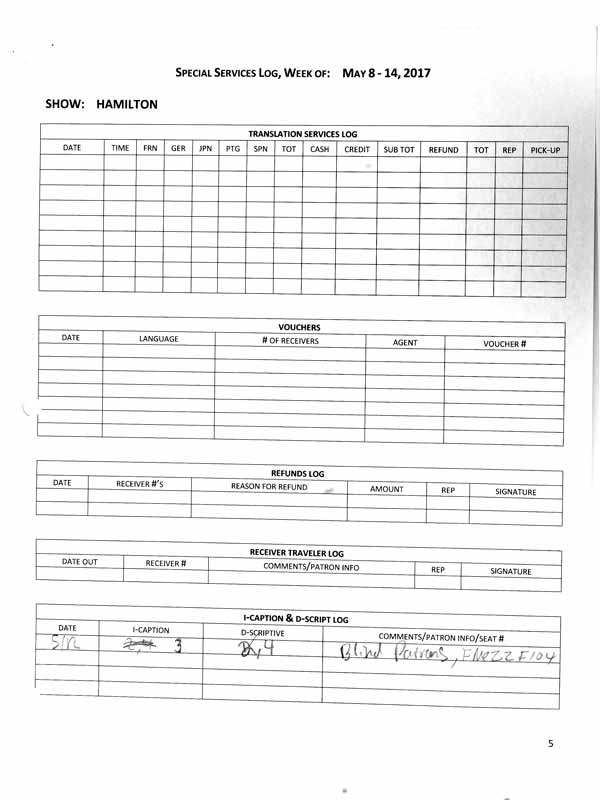 SPECIAL SERVICES LOG, WEEK OF: MAY 8 - 14, 2017
SHOW: HAMILTON
TRANSLATION SERVICES LOG
DATE TIME FRN GER JPN PTG SPN TOT CASH CREDIT SUB TOT REFUND TOT REP PICK-UP
VOUCHERS
DATE LANGUAGE # OF RECEIVERS AGENT VOUCHER #
REFUNDS LOG
DATE RECEIVER #'S REASON FOR REFUND AMOUNT REP SIGNATURE
RECEIVER TRAVELER LOG
DATE OUT RECEIVER # COMMENTS/PATRON INFO REP SIGNATURE
I-CAPTION & D-SCRIPT LOG
DATE I-CAPTION D-SCRIPTIVE COMMENTS/PATRON INFO/SEAT #
3 4 Blind Patrons, FMEZZ F104
5